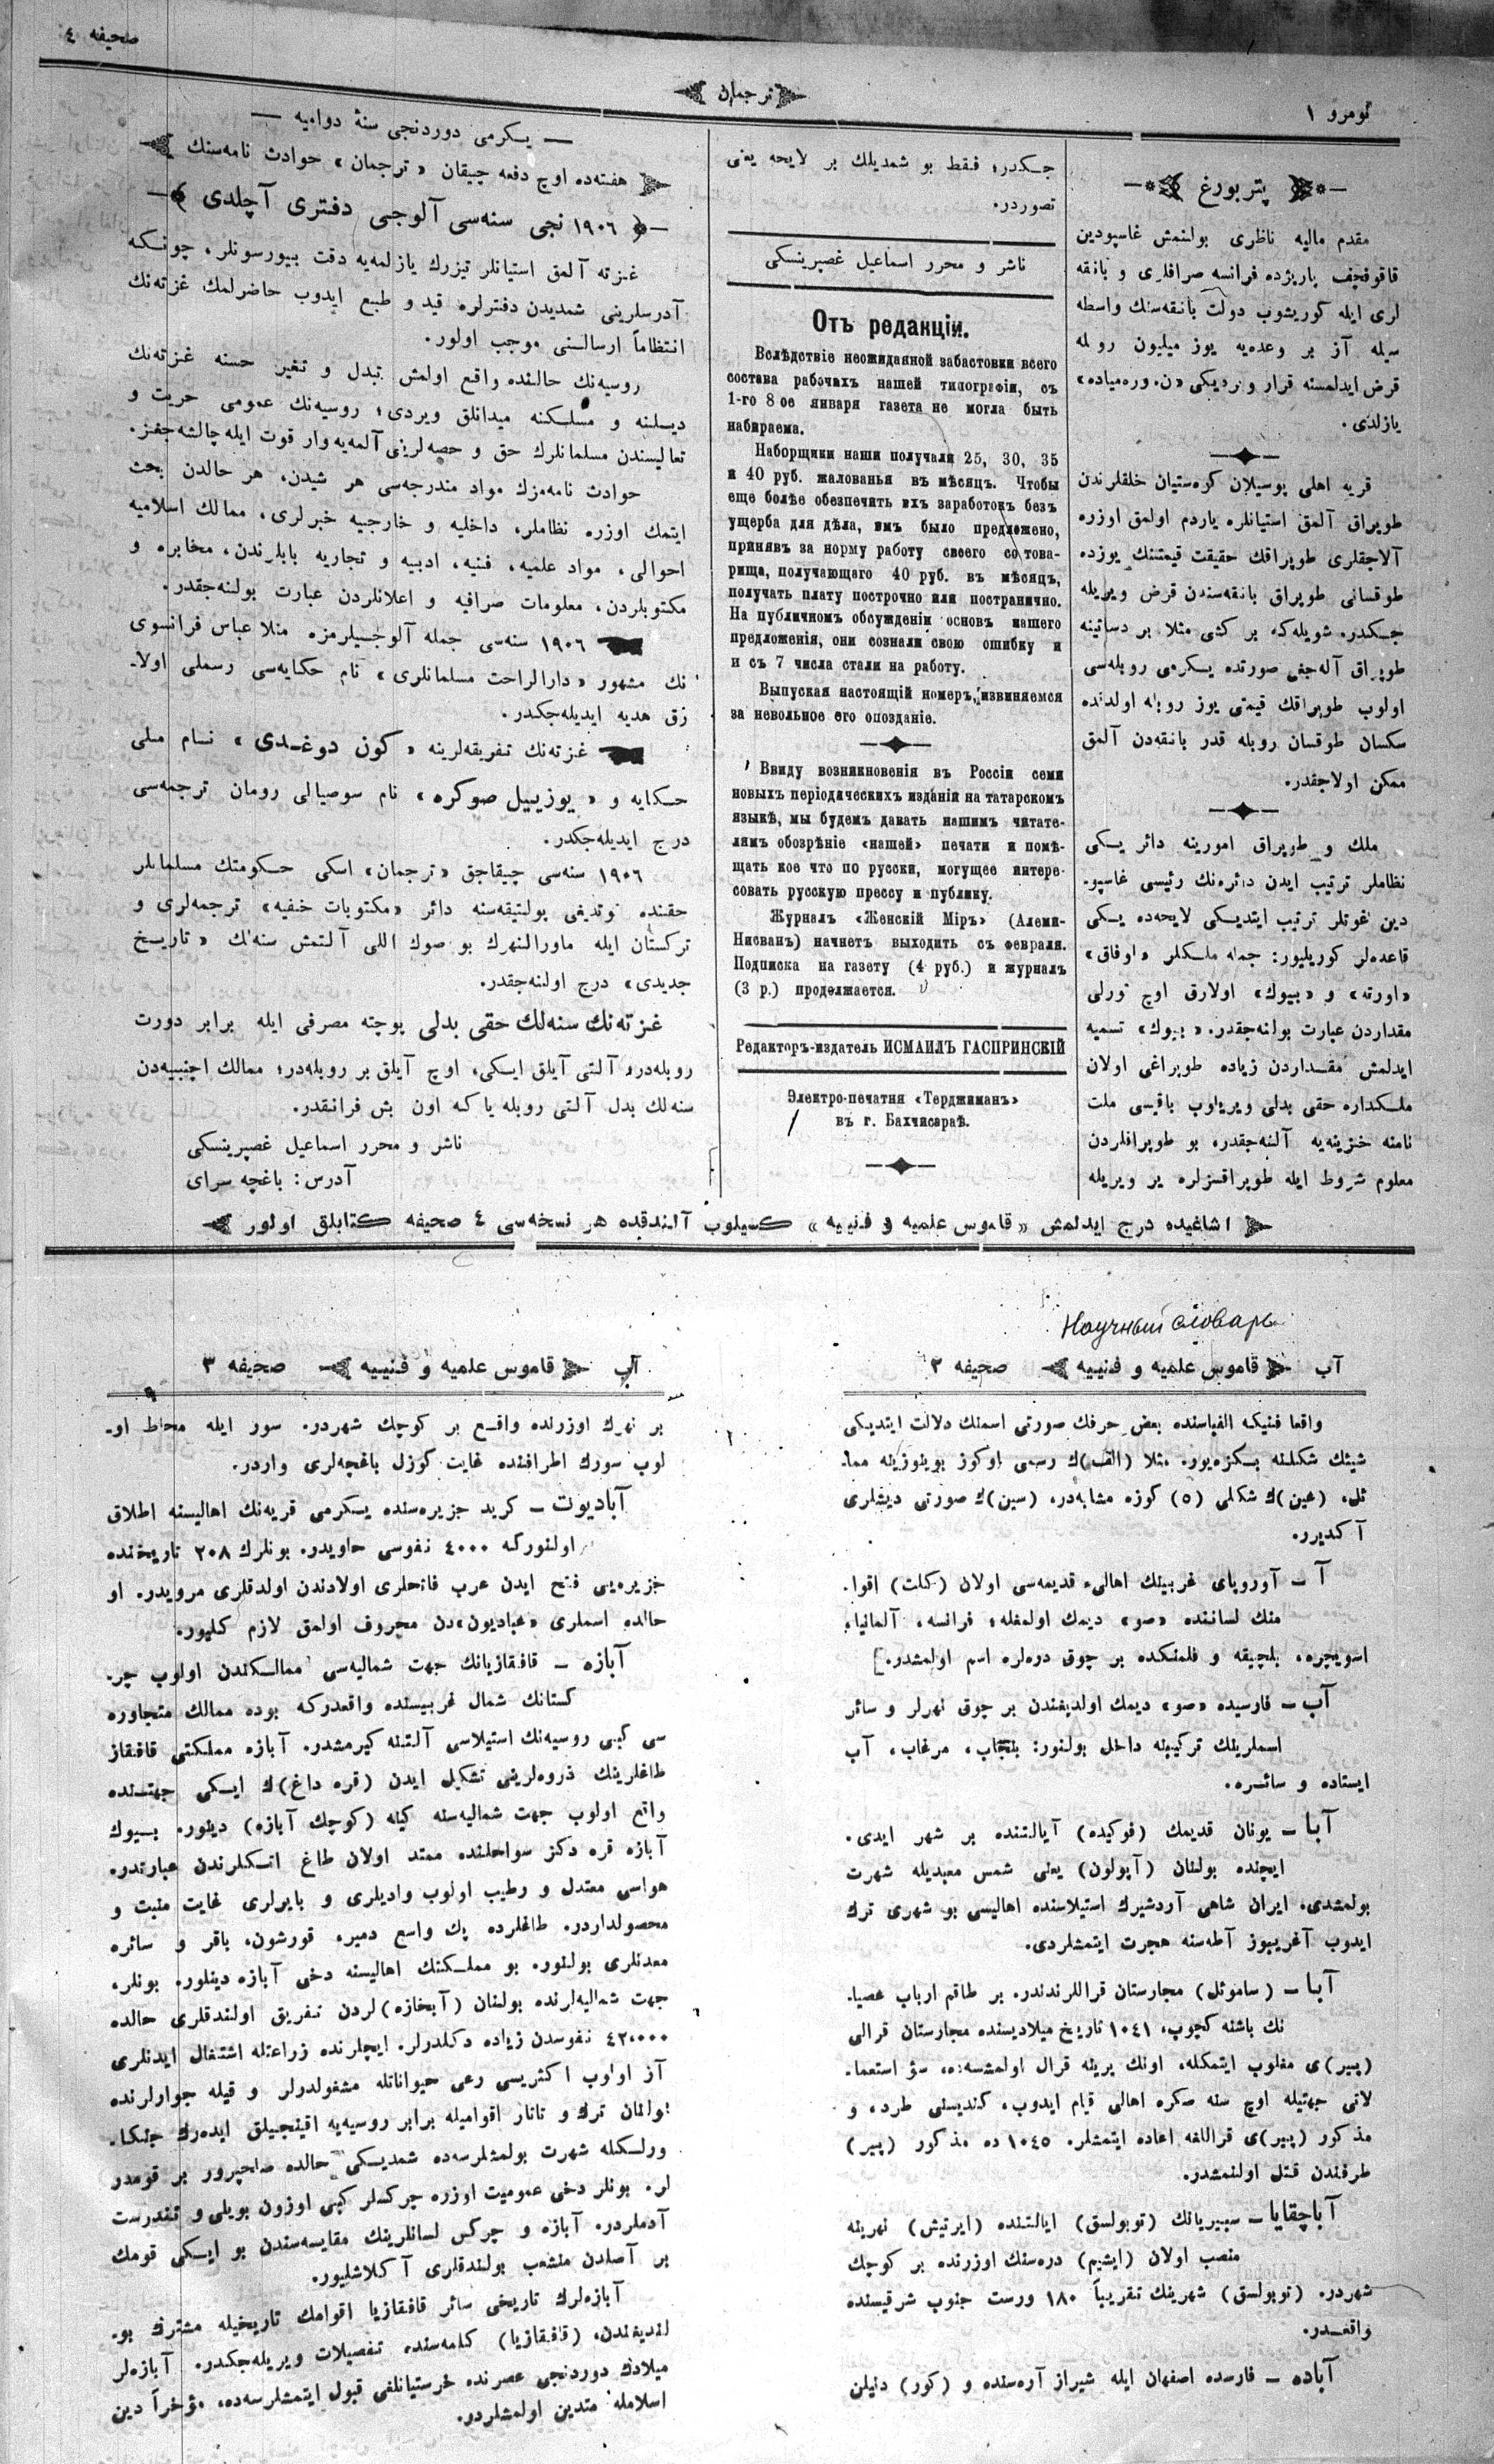 صحیفه ٤
ترجمان
نومرو ١
پتربورغ
مقدم مالیه ناظری بولنمش غاسپودین
قاقوفچف پاریژده فرانسه صرافلری و بانقه
لری ایله کوریشوب دولت بانقه‌سنك واسطه
سیله آز بر وعده‌یه یوز میلیون روبله
قرض ایدلمسنه قرار ویردیکی «نه وره‌میاده»
یازلدی.
قریه اهلی بوسیلان کره‌ستیان خلقلرندن
طوپراق آلمق استیانلره یاردم اولمق اوزره
آلاجقلری طوپراقك حقیقت قیمتنك یوزده
طوقسانی طوپراق بانقه‌سندن قرض ویریله
جکدر. شویله‌که بر کشی مثلا بر دساتینه
طوپراق آله‌جق صورتده یکرمی روبله‌سی
اولوب طوپراقك قیمتی یوز روبله اولدنده
سکسان طوقسان روبله قدر بانقه‌دن آلمق
ممکن اولاجقدر.
ملك و طوپراق امورینه دائر یکی
نظاملر ترتیب ایدن دائره‌نك رئیسی غاسپو-
دین غوتلر ترتیب ایتدیکی لایحه‌ده یکی
قاعده‌لر کوریلیور: جمله ملکلر «اوفاق»
«اورته» و «بیوك» اولارق اوچ تورلی
مقداردن عبارت بولنه‌جقدر. «بیوك» تسمیه
ایدلمش مقداردن زیاده طوپراغی اولان
ملکداره حقی بدلی ویریلوب باقیسی ملت
نامنه خزینه‌یه آلنه‌جقدر. بو طوپراقلردن
معلوم شروط ایله طوپراقسزلره یر ویریله
جکدر؛ فقط بو شمدیلك بر لایحه یعنی
تصوردر.
ناشر و محرر اسماعیل غصپرینسکی
Отъ редакціи.
Вслѣдствіе неожиданной забастовки всего
состава рабочихъ нашей типографіи, съ
1-го 8 ое января газета не могла быть
набираема.
Наборщики наши получали 25, 30, 35
и 40 руб. жалованья въ мѣсяцъ. Чтобы
еще болѣе обезпечить ихъ заработокъ безъ
ущерба для дѣла, имъ было предложено,
принявъ за норму работу своего сотова-
рища, получающаго 40 руб. въ мѣсяцъ,
получать плату построчно или постранично.
На публичномъ обсужденіи основъ нашего
предложенія, они сознали свою ошибку и
и съ 7 числа стали на работу.
Выпуская настоящій номеръ, извиняемся
за невольное его опозданіе.
Ввиду возникновенія въ Россіи семи
новыхъ періодическихъ изданій на татарскомъ
языкѣ, мы будемъ давать нашимъ читате-
лямъ обозрѣніе «нашей» печати и помѣ-
щать кое что по русски, могущее интере-
совать русскую прессу и публику.
Журналъ «Женскій Міръ» (Алеми-
Нисванъ) начнетъ выходить съ февраля.
Подписка на газету (4 руб.) и журналъ
(3 р.) продолжается.
Редакторъ-издатель ИСМАИЛЪ ГАСПРИНСКІЙ
Электро-печатня «Терджиманъ»
въ г. Бахчисараѣ.
— یکرمی دوردنجی سنهٔ دوامیه —
هفته‌ده اوچ دفعه چیقان «ترجمان» حوادث نامه‌سنك
١٩٠٦ نجی سنه‌سی آلوجی دفتری آچلدی
غزته آلمق استیانلر تیزرك یازلمه‌یه دقت بیورسونلر، چونکه
آدرسلرینی شمدیدن دفترلره قید و طبع ایدوب حاضرلمك غزته‌نك
انتظاماً ارسالنی موجب اولور.
روسیه‌نك حالنده واقع اولمش تبدل و تغیر حسنه غزته‌نك
دیلنه و مسلکنه میدانلق ویردی؛ روسیه‌نك عمومی حریت و
تعالیسندن مسلمانلرك حق و حصه‌لرینی آلمه‌یه وار قوت ایله چالشه‌جغز.
حوادث نامه‌مزك مواد مندرجه‌سی هر شیدن، هر حالدن بحث
ایتمك اوزره نظاملر، داخلیه و خارجیه خبرلری، ممالك اسلامیه
احوالی، مواد علمیه، فنیه، ادبیه و تجاریه بابلرندن، مخابره و
مکتوبلردن، معلومات صرافیه و اعلانلردن عبارت بولنه‌جقدر.
١٩٠٦ سنه‌سی جمله آلوجیلرمزه منلا عباس فرانسوی
نك مشهور «دارالراحت مسلمانلری» نام حکایه‌سی رسملی اولا-
رق هدیه ایدیله‌جکدر.
غزته‌نك تفریقه‌لرینه «کون دوغدی» نام ملی
حکایه و «یوزییل صوکره» نام سوصیالی رومان ترجمه‌سی
درج ایدیله‌جکدر.
١٩٠٦ سنه‌سی چیقاجق «ترجمان» اسکی حکومتك مسلمانلر
حقنده توتدیغی پولتیقه‌سنه دائر «مکتوبات خفیه» ترجمه‌لری و
ترکستان ایله ماورالنهرك بو صوك اللی آلتمش سنه‌لك «تاریخ
جدیدی» درج اولنه‌جقدر.
غزته‌نك سنه‌لك حقی بدلی پوچته مصرفی ایله برابر دورت
روبله‌در، آلتی آیلق ایکی، اوچ آیلق بر روبله‌در؛ ممالك اجنبیه‌دن
سنه‌لك بدل آلتی روبله یا که اون بش فرانقدر.
ناشر و محرر اسماعیل غصپرینسکی
آدرس: باغچه سرای
اشاغیده درج ایدلمش «قاموس علمیه و فنییه» کسیلوب آلندقده هر نسخه‌سی ٤ صحیفه کتابلق اولور
Научный словарь
آب قاموس علمیه و فنییه صحیفه ٢
واقعا فنیکه الفباسنده بعض حرفك صورتی اسمنك دلالت ایتدیکی
شیئك شکلنه بکزه‌یور. مثلا (الف)ك رسمی اوکوز بوینوزینه مما-
ثل، (عین)ك شکلی (٥) کوزه مشابه‌در، (سین)ك صورتی دیشلری
آکدیرر.
آ — آوروپای غربینك اهالیء قدیمه‌سی اولان (کلت) اقوا-
منك لساننده «صو» دیمك اولمغله، فرانسه، آلمانیا،
اسویچره، بلچیقه و فلمنکده بر چوق دره‌لره اسم اولمشدر.
آب — فارسیده «صو» دیمك اولدیغندن بر چوق نهرلر و سائر
اسملرینك ترکیبنه داخل بولنور: پنجاب، مرغاب، آب
ایستاده و سائره.
آبا — یونان قدیمك (فوکیده) آیالتنده بر شهر ایدی.
ایچنده بولنان (آپولون) یعنی شمس معبدیله شهرت
بولمشدی. ایران شاهی آردشیرك استیلاسنده اهالیسی بو شهری ترك
ایدوب آغریبوز آطه‌سنه هجرت ایتمشلردی.
آبا — (ساموئل) مجارستان قراللرندندر. بر طاقم ارباب عصیا-
نك باشنه کچوب، ١٠٤١ تاریخ میلادیسنده مجارستان قرالی
(پیر)ی مغلوب ایتمکله، اونك یرینه قرال اولمشسه‌ده، سؤ استعما-
لاتی جهتیله اوچ سنه صکره اهالی قیام ایدوب، کندیسنی طرد، و
مذکور (پیر)ی قراللغه اعاده ایتمشلر. ١٠٤٥ ده مذکور (پیر)
طرفندن قتل اولنمشدر.
آباچقایا — سیبریانك (توبولسق) ایالتنده (ایرتیش) نهرینه
منصب اولان (ایشیم) دره‌سنك اوزرنده بر کوچك
شهردر. (توبولسق) شهرینك تقریباً ١٨٠ ورست جنوب شرقیسنده
واقعدر.
آباده — فارسده اصفهان ایله شیراز آره‌سنده و (کور) دنیلن
آب قاموس علمیه و فنییه صحیفه ٣
بر نهرك اوزرنده واقع بر کوچك شهردر. سور ایله محاط او-
لوب سورك اطرافنده غایت کوزل باغچه‌لری واردر.
آبادیوت — کرید جزیره‌سنده یکرمی قریه‌نك اهالیسنه اطلاق
اولنورکه ٤٠٠٠ نفوسی حاویدر. بونلرك ٢٠٨ تاریخنده
جزیره‌یی فتح ایدن عرب فاتحلری اولادندن اولدقلری مرویدر. او
حالده اسملری «عبادیون»دن محروف اولمق لازم کلیور.
آبازه — قافقازیانك جهت شمالیه‌سی ممالکندن اولوب چر-
کستانك شمال غربیسنده واقعدرکه بوده ممالك متجاوره
سی کبی روسیه‌نك استیلاسی آلتنه کیرمشدر. آبازه مملکتی قافقاز
طاغلرینك ذروه‌لرینی تشکیل ایدن (قره داغ)ك ایکی جهتنده
واقع اولوب جهت شمالیه‌سنه کینه (کوچك آبازه) دینور. بیوك
آبازه قره دکز سواحلنده ممتد اولان طاغ اتکلرندن عبارتدر.
هواسی معتدل و رطیب اولوب وادیلری و بایرلری غایت منبت و
محصولداردر. طاغلرده پك واسع دمیر، قورشون، باقر و سائره
معدنلری بولنور. بو مملکتك اهالیسنه دخی آبازه دینلور. بونلر،
جهت شمالیه‌لرنده بولنان (آبخازه)لردن تفریق اولندقلری حالده
٤٢٠٠٠ نفوسدن زیاده دکلدرلر. ایچلرنده زراعتله اشتغال ایدنلری
آز اولوب اکثریسی رعی حیواناتله مشغولدرلر و قیله جوارلرنده
بولنان ترك و تاتار اقوامیله برابر روسیه‌یه اقینجیلق ایدەرك جنکا-
ورلکله شهرت بولمشلرسه‌ده شمدیکی حالده صلحپرور بر قومدر
لر. بونلر دخی عمومیت اوزره چرکسلر کبی اوزون بویلی و تندرست
آدملردر. آبازه و چرکس لسانلرینك مقایسه‌سندن بو ایکی قومك
بر آصلدن منشعب بولندقلری آکلاشلیور.
آبازه‌لرك تاریخی سائر قافقازیا اقوامك تاریخیله مشترك بو-
لندیغندن، (قافقازیا) کلمه‌سنده تفصیلات ویریله‌جکدر. آبازه‌لر
میلادك دوردنجی عصرنده خرستیانلغی قبول ایتمشلرسه‌ده، مؤخراً دین
اسلامله متدین اولمشلردر.